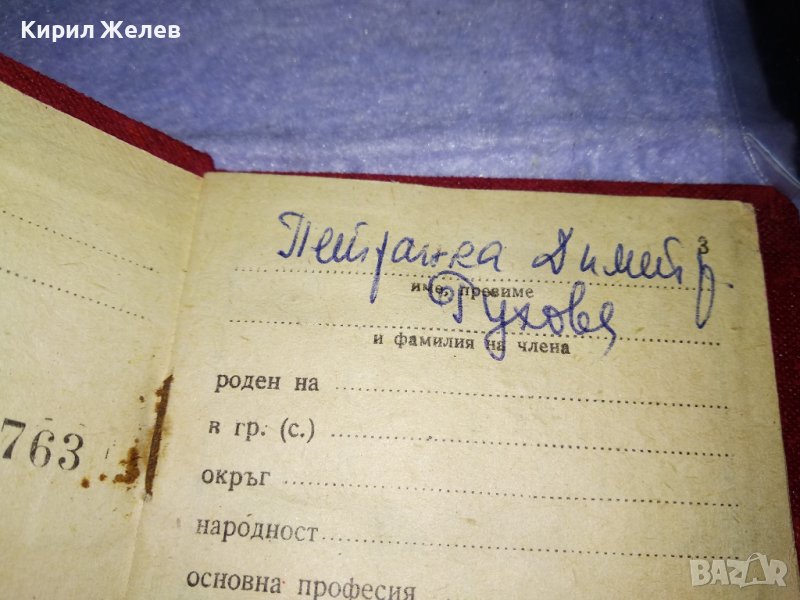 Кирил Желев
3
Петранка Димитр.
име, презиме
Рухова
и фамилия на члена
роден на
в гр. (с.)
763
окръг
народност
основна професия
BAZAR